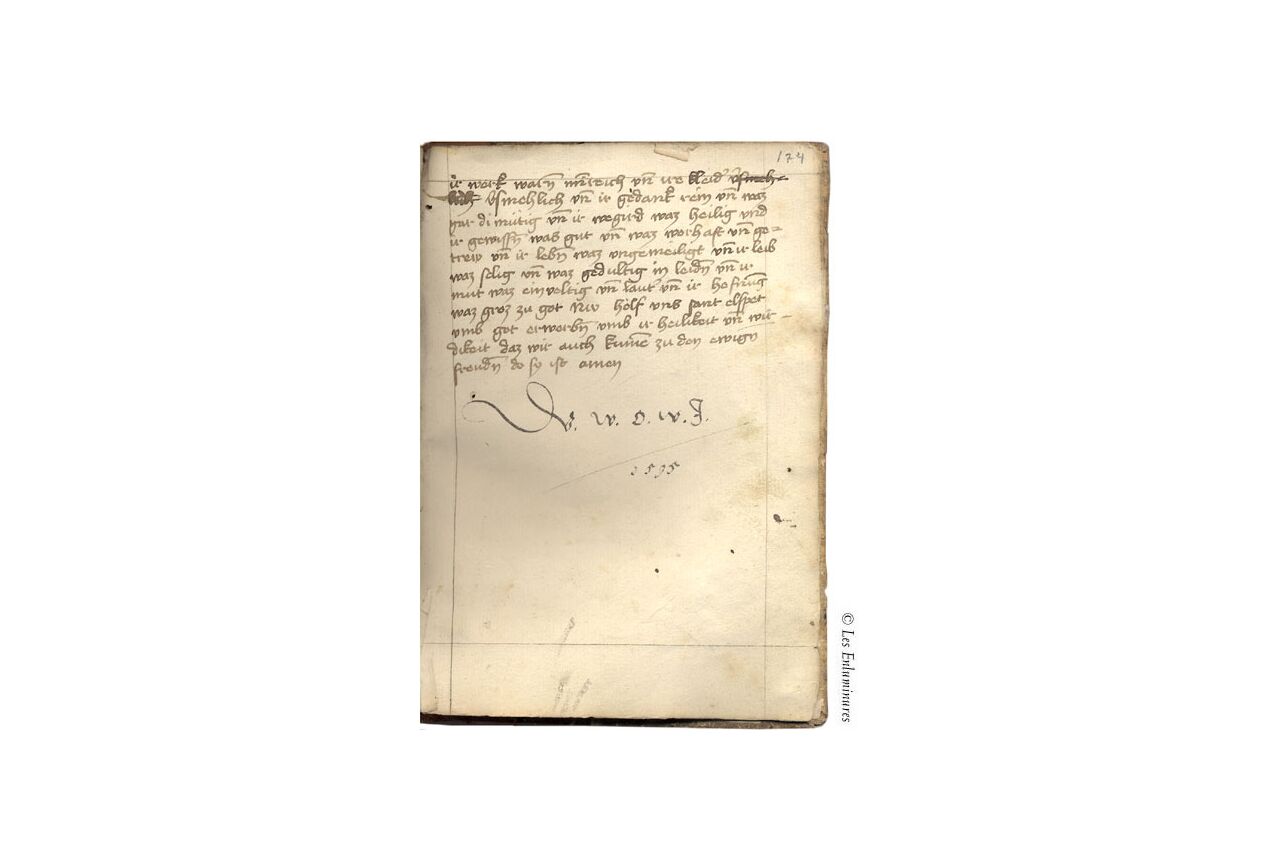 174
ir werk warn miñreich vñ ire kleid vˢmeh-
lich vˢmehlich vñ ir gedank rein vñ waz
gar dimütig vñ ir wegird waz heilig vnd
ir gewissñ was gut vñ waz worhaft vñ ge-
trew vñ ir lebñ waz vngemeiligt vñ ir leib
waz selig vñ waz gedultig in leidñ vñ ir
mut waz einveltig vñ lauter vñ ir hofnūg
waz groz zu got Nu helf vns sant elspet
vmb got erwerbñ vmb ir heilikeit vñ wir-
dikeit daz wir auch kumē zu den ewign
freudñ do sy ist amen
W. O. W. J.
1595
© Les Enluminures